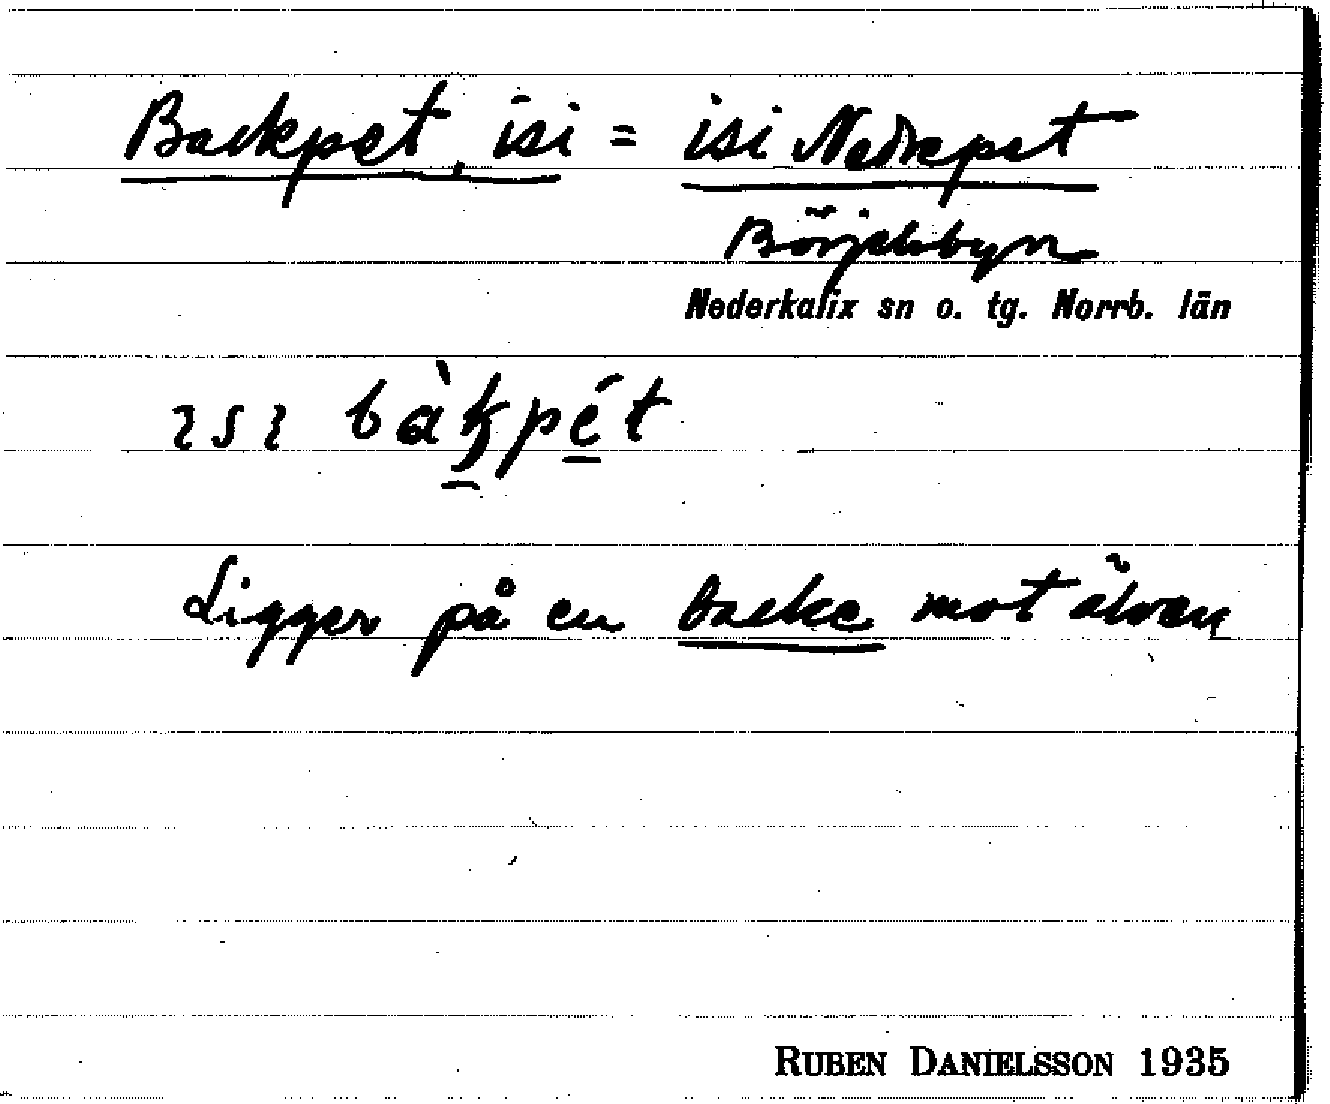 Backpet, isi = isi Nedrepet
Börjelsbyn
Nederkalix sn o. tg. Norrb. län
ɩsɩ bàk̠pé̠t
Ligger på en backe mot älven
RUBEN DANIELSSON 1935